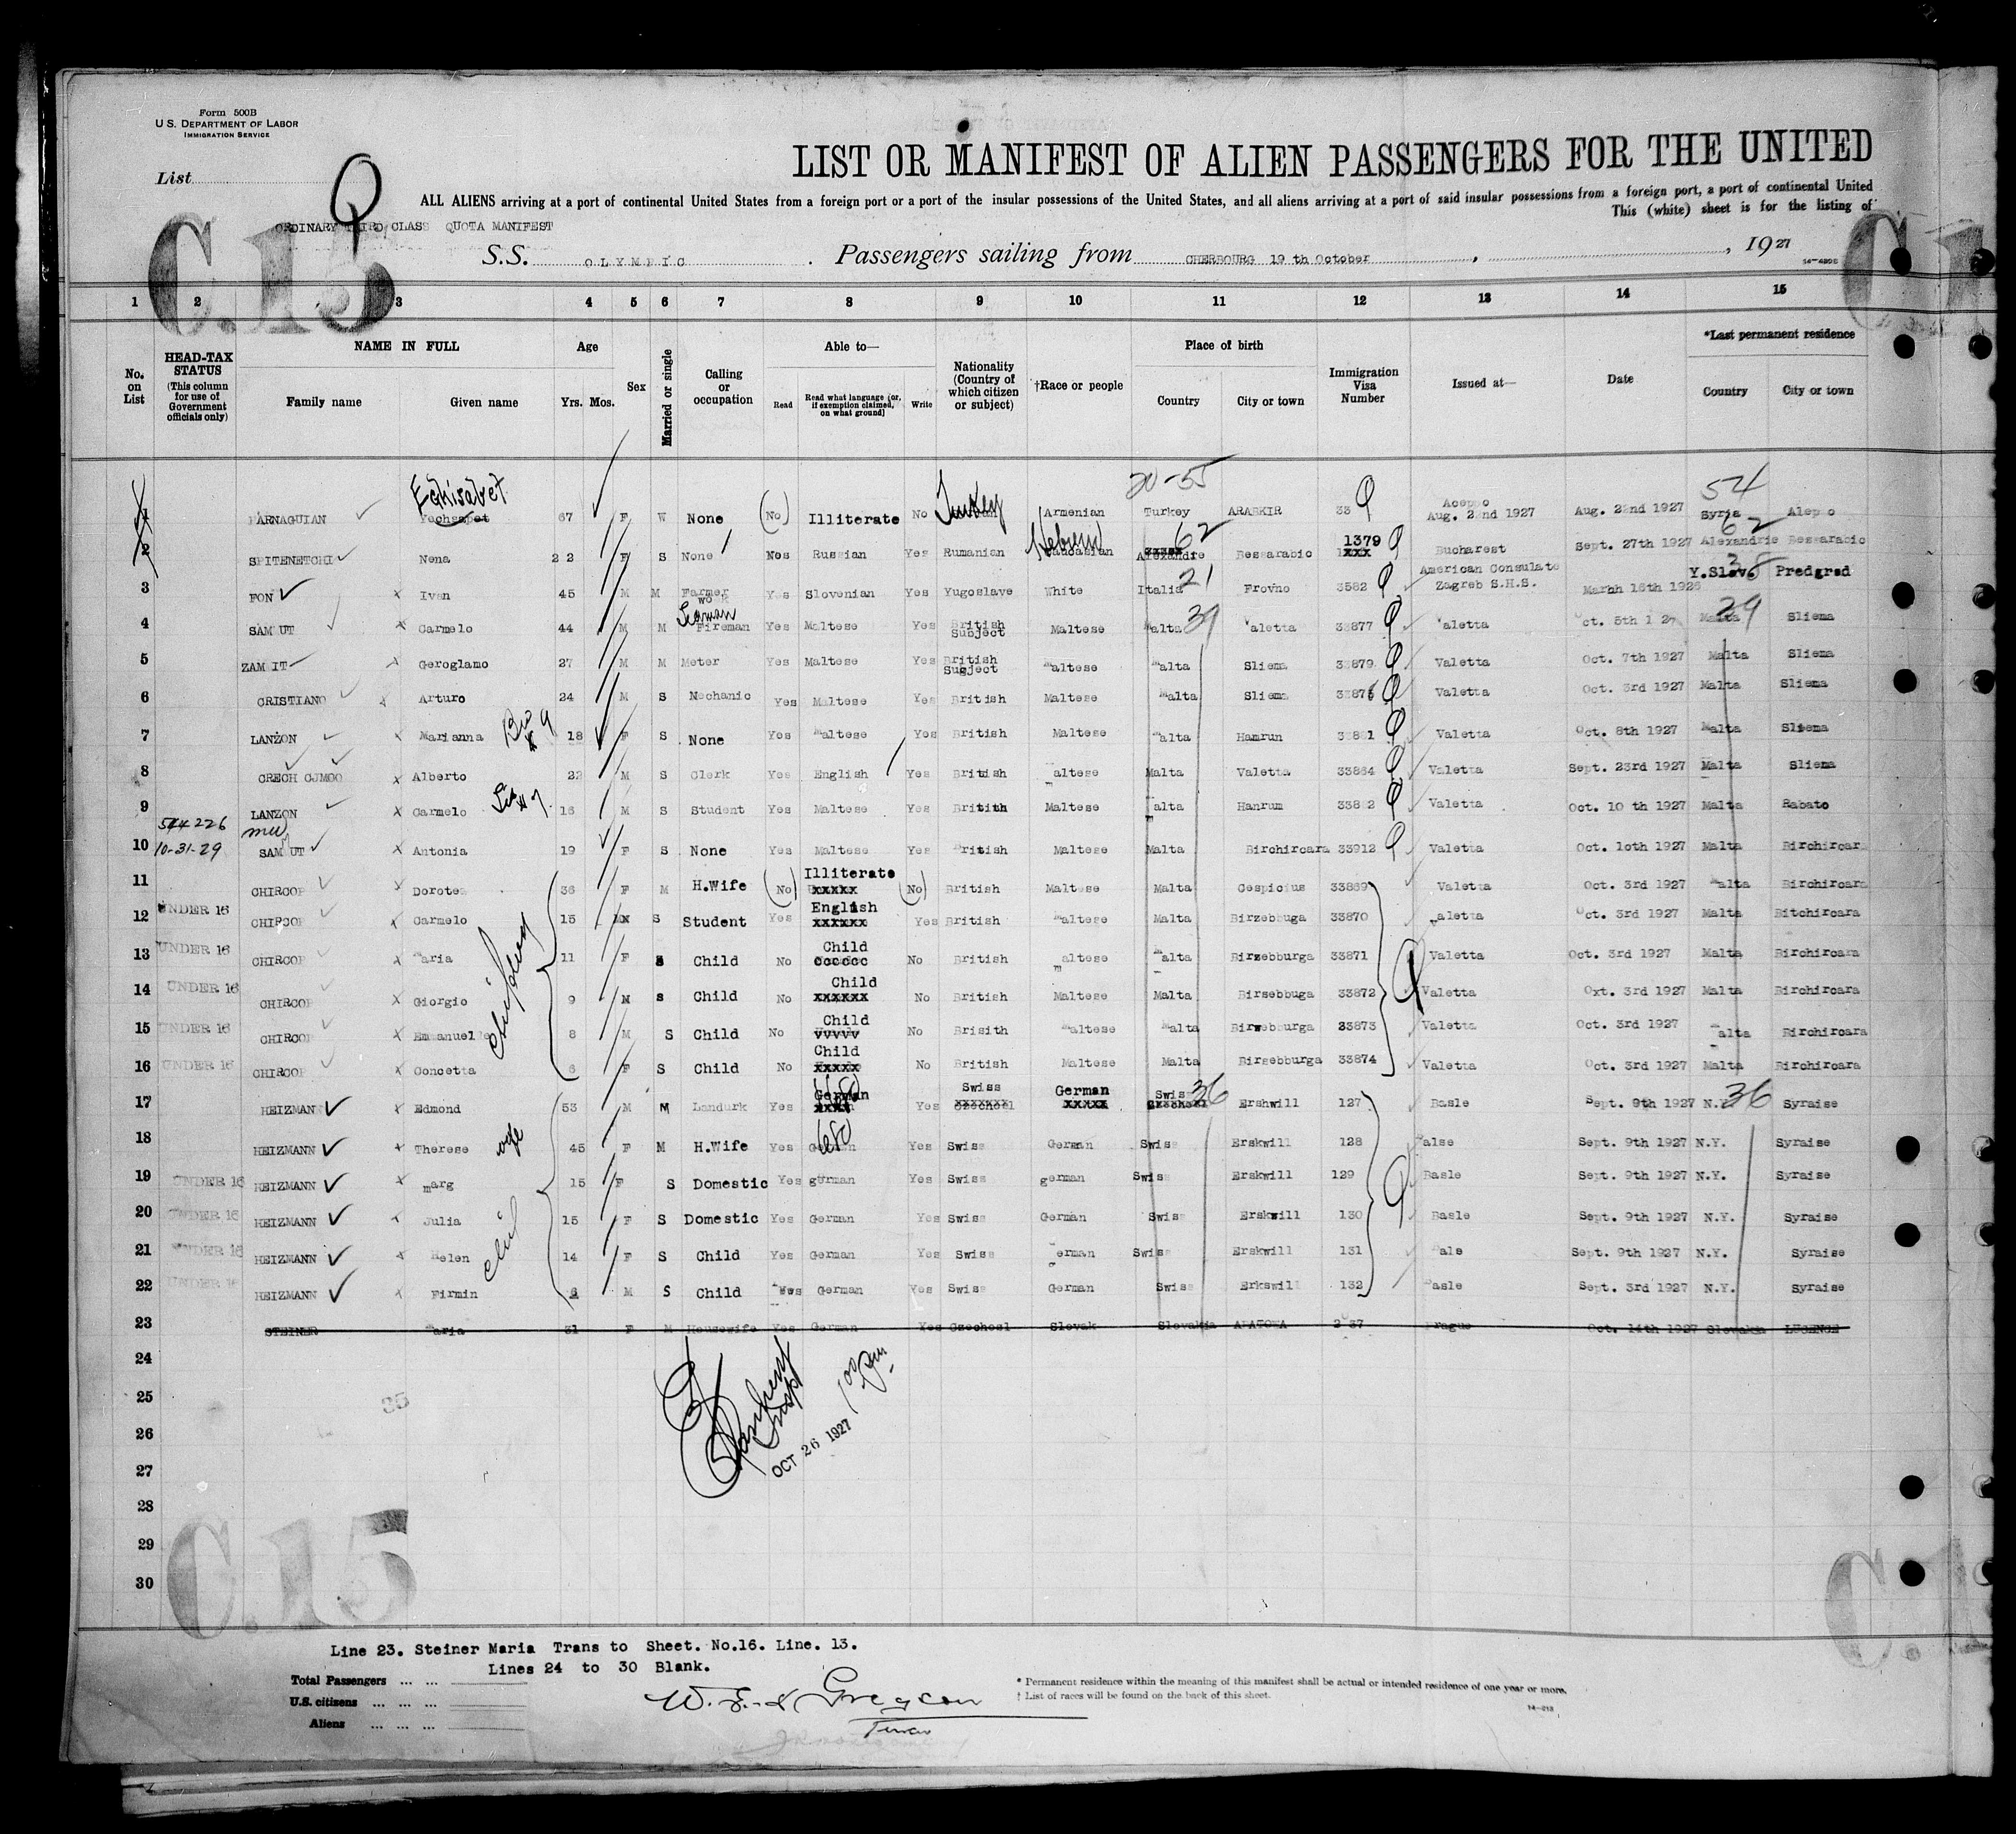 Form 500B
U.S. DEPARTMENT OF LABOR
IMMIGRATION SERVICE
List Q
LIST OR MANIFEST OF ALIEN PASSENGERS FOR THE UNITED
ALL ALIENS arriving at a port of continental United States from a foreign port or a port of the insular possessions of the United States, and all aliens arriving at a port of said insular possessions from a foreign port, a port of continental United
This (white) sheet is for the listing of
C.15
ORDINARY THIRD CLASS QUOTA MANIFEST
S.S. OLYMPIC . Passengers sailing from CHERBOURG 19 th October , , 1927
1 2 3 4 5 6 7 8 9 10 11 12 13 14 15
No. on List
HEAD-TAX STATUS (This column for use of Government officials only)
NAME IN FULL Family name Given name
Age Yrs. Mos.
Sex
Married or single
Calling or occupation
Able to— Read Read what language (or, if exemption claimed, on what ground) Write
Nationality (Country of which citizen or subject)
†Race or people
Place of birth Country City or town
Immigration Visa Number
Issued at—
Date
*Last permanent residence Country City or town
20-55 54
1 PARNAGUIAN Eghisabet 67 F W None (No) Illiterate No Turkey Armenian Turkey ARABKIR 33 Aug. 22nd 1927 Aug. 22nd 1927 Syria Aleppo
2 SPITENETCHI Nena 22 F S None Russian Yes Rumanian Hebrew Alexandre 62 Bessarabic 1379 Bucharest Sept. 27th 1927 Alexandrie 62 Bessarabic
3 FON Ivan 45 M M Farmer Yes Slovenian Yes Yugoslave White Italia 21 Frovno 3582 American Consulate Zagreb S.H.S. Marhh 16th 1926 Y.Slav. Predgrad
4 SAMMUT Carmelo 44 M M Seaman Fireman Yes Maltese Yes British Subject Maltese Malta 39 Valetta 33877 Valetta Oct. 5th 1927 Malta 39 Sliema
5 ZAMMIT Geroglamo 27 M M Meter Yes Maltese Yes British Sugject Maltese Malta Sliema 33879 Valetta Oct. 7th 1927 Malta Sliema
6 CRISTIANO Arturo 24 M S Mechanic Yes Maltese Yes British Maltese Malta Sliema 33876 Valetta Oct. 3rd 1927 Malta Sliema
7 LANZON Marianna 18 F S None Yes Maltese Yes British Maltese Malta Hamrun 33881 Valetta Oct. 8th 1927 Malta Sliema
8 CRECH CJMOO Alberto 22 M S Clerk Yes English Yes British Maltese Malta Valetta 33864 Valetta Sept. 23rd 1927 Malta Sliema
9 LANZON Carmelo 16 M S Student Yes Maltese Yes Britith Maltese Malta Hanrum 33882 Valetta Oct. 10 th 1927 Malta Rabato
10 10-31-29 SAMMUT Antonia 19 F S None Yes Maltese Yes British Maltese Malta Birchircara 33912 Valetta Oct. 10th 1927 Malta Birchircar
11 CHIRCOP Dorotea 36 F M H.Wife (No) Illiterate (No) British Maltese Malta Cospicius 33869 Valetta Oct. 3rd 1927 Malta Birchircara
12 UNDER 16 CHIRCOP Carmelo 15 S Student Yes English Yes British Maltese Malta Birzebbuga 33870 Valetta Oct. 3rd 1927 Malta Bitchircara
13 UNDER 16 CHIRCOP Maria 11 F S Child No Child No British Maltese Malta Birzebburga 33871 Valetta Oct. 3rd 1927 Malta Birchircara
14 UNDER 16 CHIRCOP Giorgio 9 M S Child No Child No British Maltese Malta Birsebbuga 33872 Valetta Oxt. 3rd 1927 Malta Birchircara
15 UNDER 16 CHIRCOP Emmanuelle 8 M S Child No Child No Brisith Maltese Malta Birwebburga 33873 Valetta Oct. 3rd 1927 Malta Birchircara
16 UNDER 16 CHIRCOP Concetta 6 F S Child No Child No British Maltese Malta Birsebburga 33874 Valetta Oct. 3rd 1927 Malta Birchircara
17 HEIZMANN Edmond 53 M M Landurk Yes German Yes Swiss German Swiss 36 Ershwill 127 Basle Sept. 9th 1927 N.Y. 36 Syraise
18 HEIZMANN Therese wife 45 F M H.Wife Yes German Yes Swiss German Swiss Erskwill 128 Balse Sept. 9th 1927 N.Y. Syraise
19 UNDER 16 HEIZMANN marg 15 F S Domestic Yes german Yes Swiss german Swiss Erskwill 129 Basle Sept. 9th 1927 N.Y. Syraise
20 UNDER 16 HEIZMANN Julia 15 F S Domestic Yes German Yes Swiss German Swiss Erskwill 130 Basle Sept. 9th 1927 N.Y. Syraise
21 UNDER 16 HEIZMANN Helen 14 F S Child Yes German Yes Swiss German Swiss Erskwill 131 Bale Sept. 9th 1927 N.Y. Syraise
22 UNDER 16 HEIZMANN Firmin 6 M S Child Yes German Yes Swiss German Swiss Erkswill 132 Basle Sept. 3rd 1927 N.Y. Syraise
23 STEINER Maria 31 F M Housewife Yes German Yes Czechosl Slovak Slovakia 2037 Prague Oct. 14th 1927 Slovakia
24
25 35
26 OCT 26 1927
27
28
29
30
C.15
Line 23. Steiner Maria Trans to Sheet. No.16. Line. 13.
Lines 24 to 30 Blank.
Total Passengers
U.S. citizens
Aliens
* Permanent residence within the meaning of this manifest shall be actual or intended residence of one year or more.
† List of races will be found on the back of this sheet.
14-213